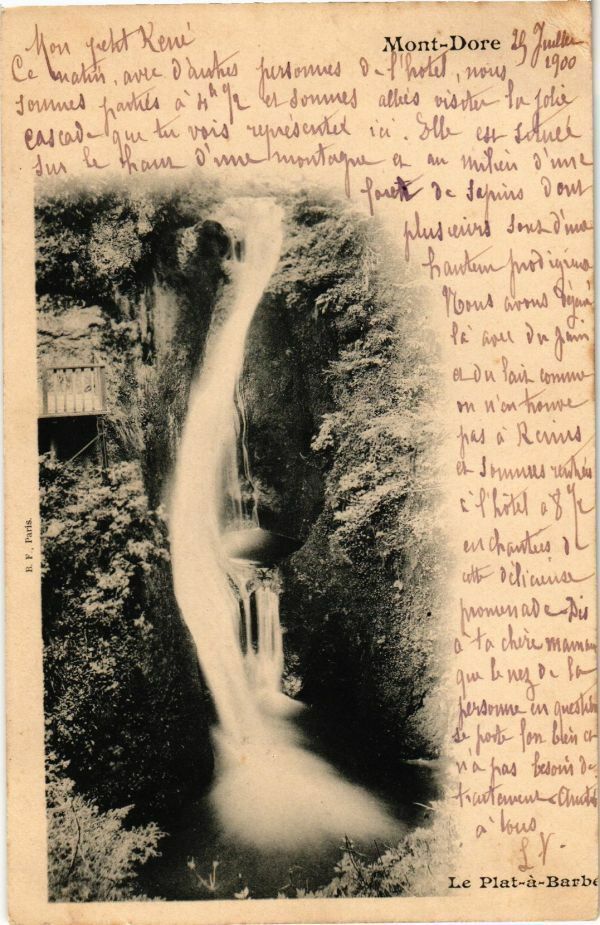 Mont-Dore
29 Juillet
1900
Mon petit René
Ce matin, avec d'autres personnes de l'hôtel, nous
sommes parties à 4h 1/2 et sommes allées visiter la jolie
cascade que tu vois représentée ici. Elle est située
sur le haut d'une montagne et au milieu d'une
forêt de sapins dont
plusieurs sont d'une
hauteur prodigieuse
Nous avons déjeuné
là avec du pain
et du lait comme
on n'en trouve
pas à Reims
et sommes rentrées
à l'hôtel à 8 1/2
enchantées de
cette délicieuse
promenade. Dis
à ta chère maman
que le nez de la
personne en question
se porte fort bien et
n'a pas besoin de
traitement. Amitiés
à tous
L V.
B. F., Paris.
Le Plat-à-Barbe